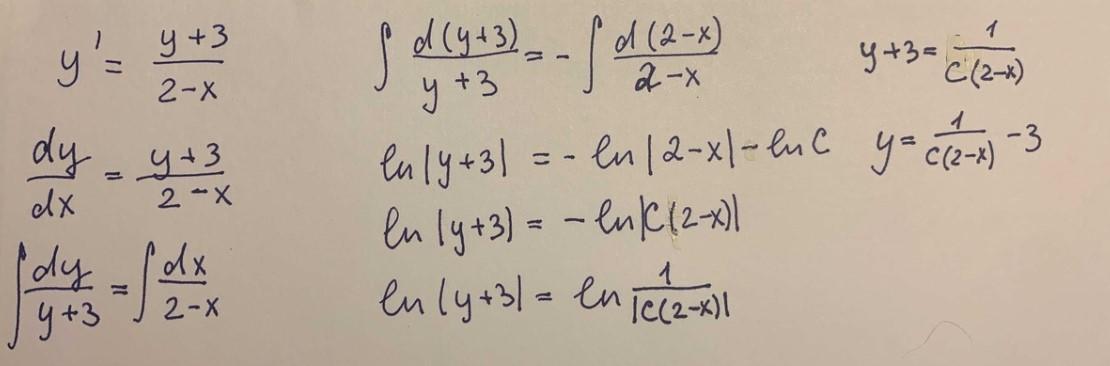 y' = (y+3)/(2-x)
dy/dx = (y+3)/(2-x)
∫ dy/(y+3) = ∫ dx/(2-x)
∫ d(y+3)/(y+3) = - ∫ d(2-x)/(2-x)
ln|y+3| = - ln|2-x| - ln C
ln|y+3| = - ln|C(2-x)|
ln|y+3| = ln 1/|C(2-x)|
y+3 = 1/(C(2-x))
y = 1/(C(2-x)) - 3